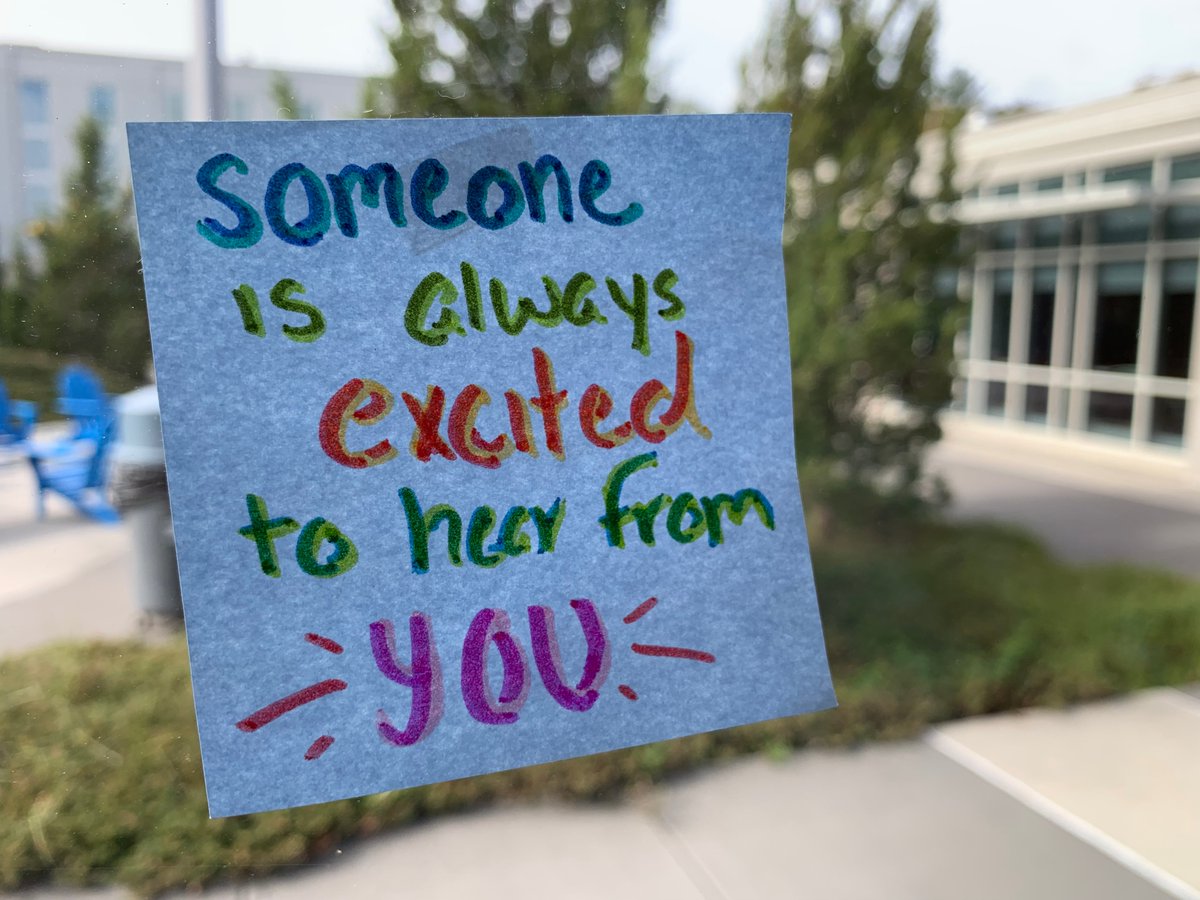 Someone
is always
excited
to hear from
YOU